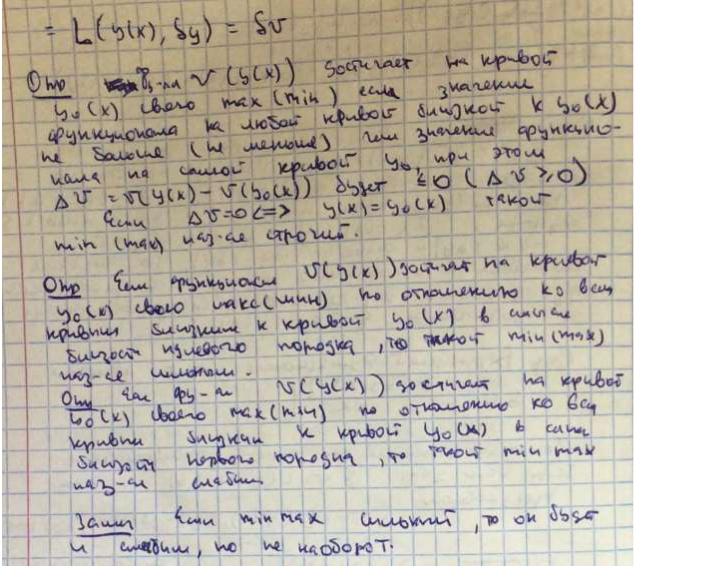 = L(y(x), δy) = δv
Опр ф-ли V(y(x)) достигает на кривой
y₀(x) своего max (min) если значение
функционала на любой кривой близкой к y₀(x)
не больше (не меньше) чем значение функцио-
нала на самой кривой y₀, при этом
Δv = v(y(x) - v(y₀(x)) будет ≤0 (Δv ≥0)
Если Δv=0 <=> y(x)=y₀(x) такой
min (max) наз-ся строгий.
Опр Если функционал v(y(x)) достигает на кривой
y₀(x) своего макс(мин) по отношению ко всем
кривым близким к кривой y₀(x) в смысле
близости нулевого порядка, то такой min (max)
наз-ся сильным.
Опр Если фу-л v(y(x)) достигает на кривой
y₀(x) своего max(min) по отношению ко всем
кривым близким к кривой y₀(x) в смысле
близости первого порядка, то такой min max
наз-ся слабым
Замеч Если min max сильный, то он будет
и слабым, но не наоборот.